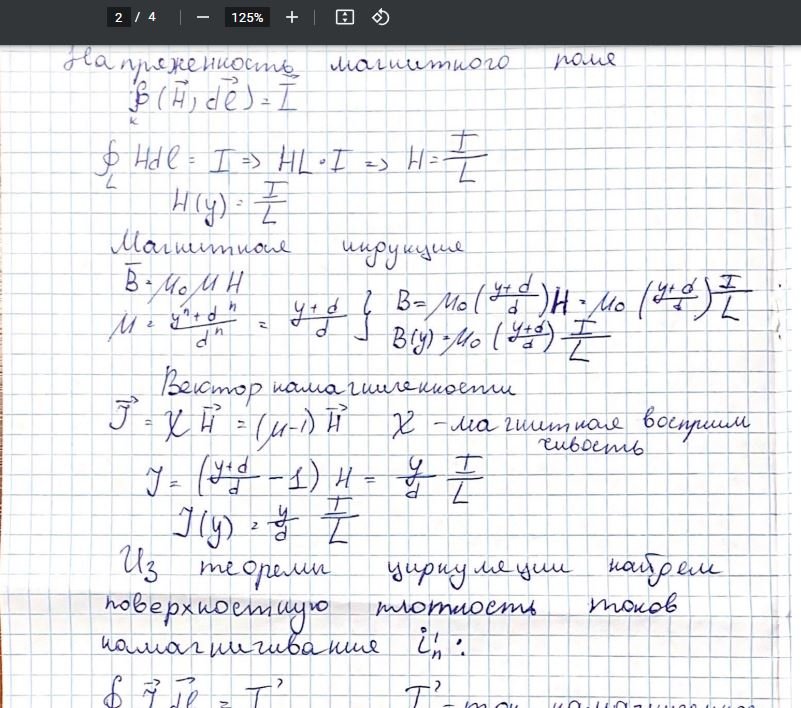 2 / 4 125%
Напряженность магнитного поля
∮ₖ (H⃗, dl⃗) = I⃗
∮_L Hdl = I => HL = I => H = I/L
H(y) = I/L
Магнитная индукция
B̄ = μ₀ μ H
μ = (yⁿ + dⁿ)/dⁿ = (y + d)/d } B = μ₀ ((y + d)/d) H = μ₀ ((y + d)/d) I/L
B(y) = μ₀ ((y + d)/d) I/L
Вектор намагниченности
J⃗ = χ H⃗ = (μ-1) H⃗ χ - магнитная восприим
чивость
J = ((y + d)/d - 1) H = y/d I/L
J(y) = y/d I/L
Из теоремы циркуляции найдем
поверхностную плотность токов
намагничивания i'ₙ :
∮ J⃗ dl⃗ = I' I' - ток